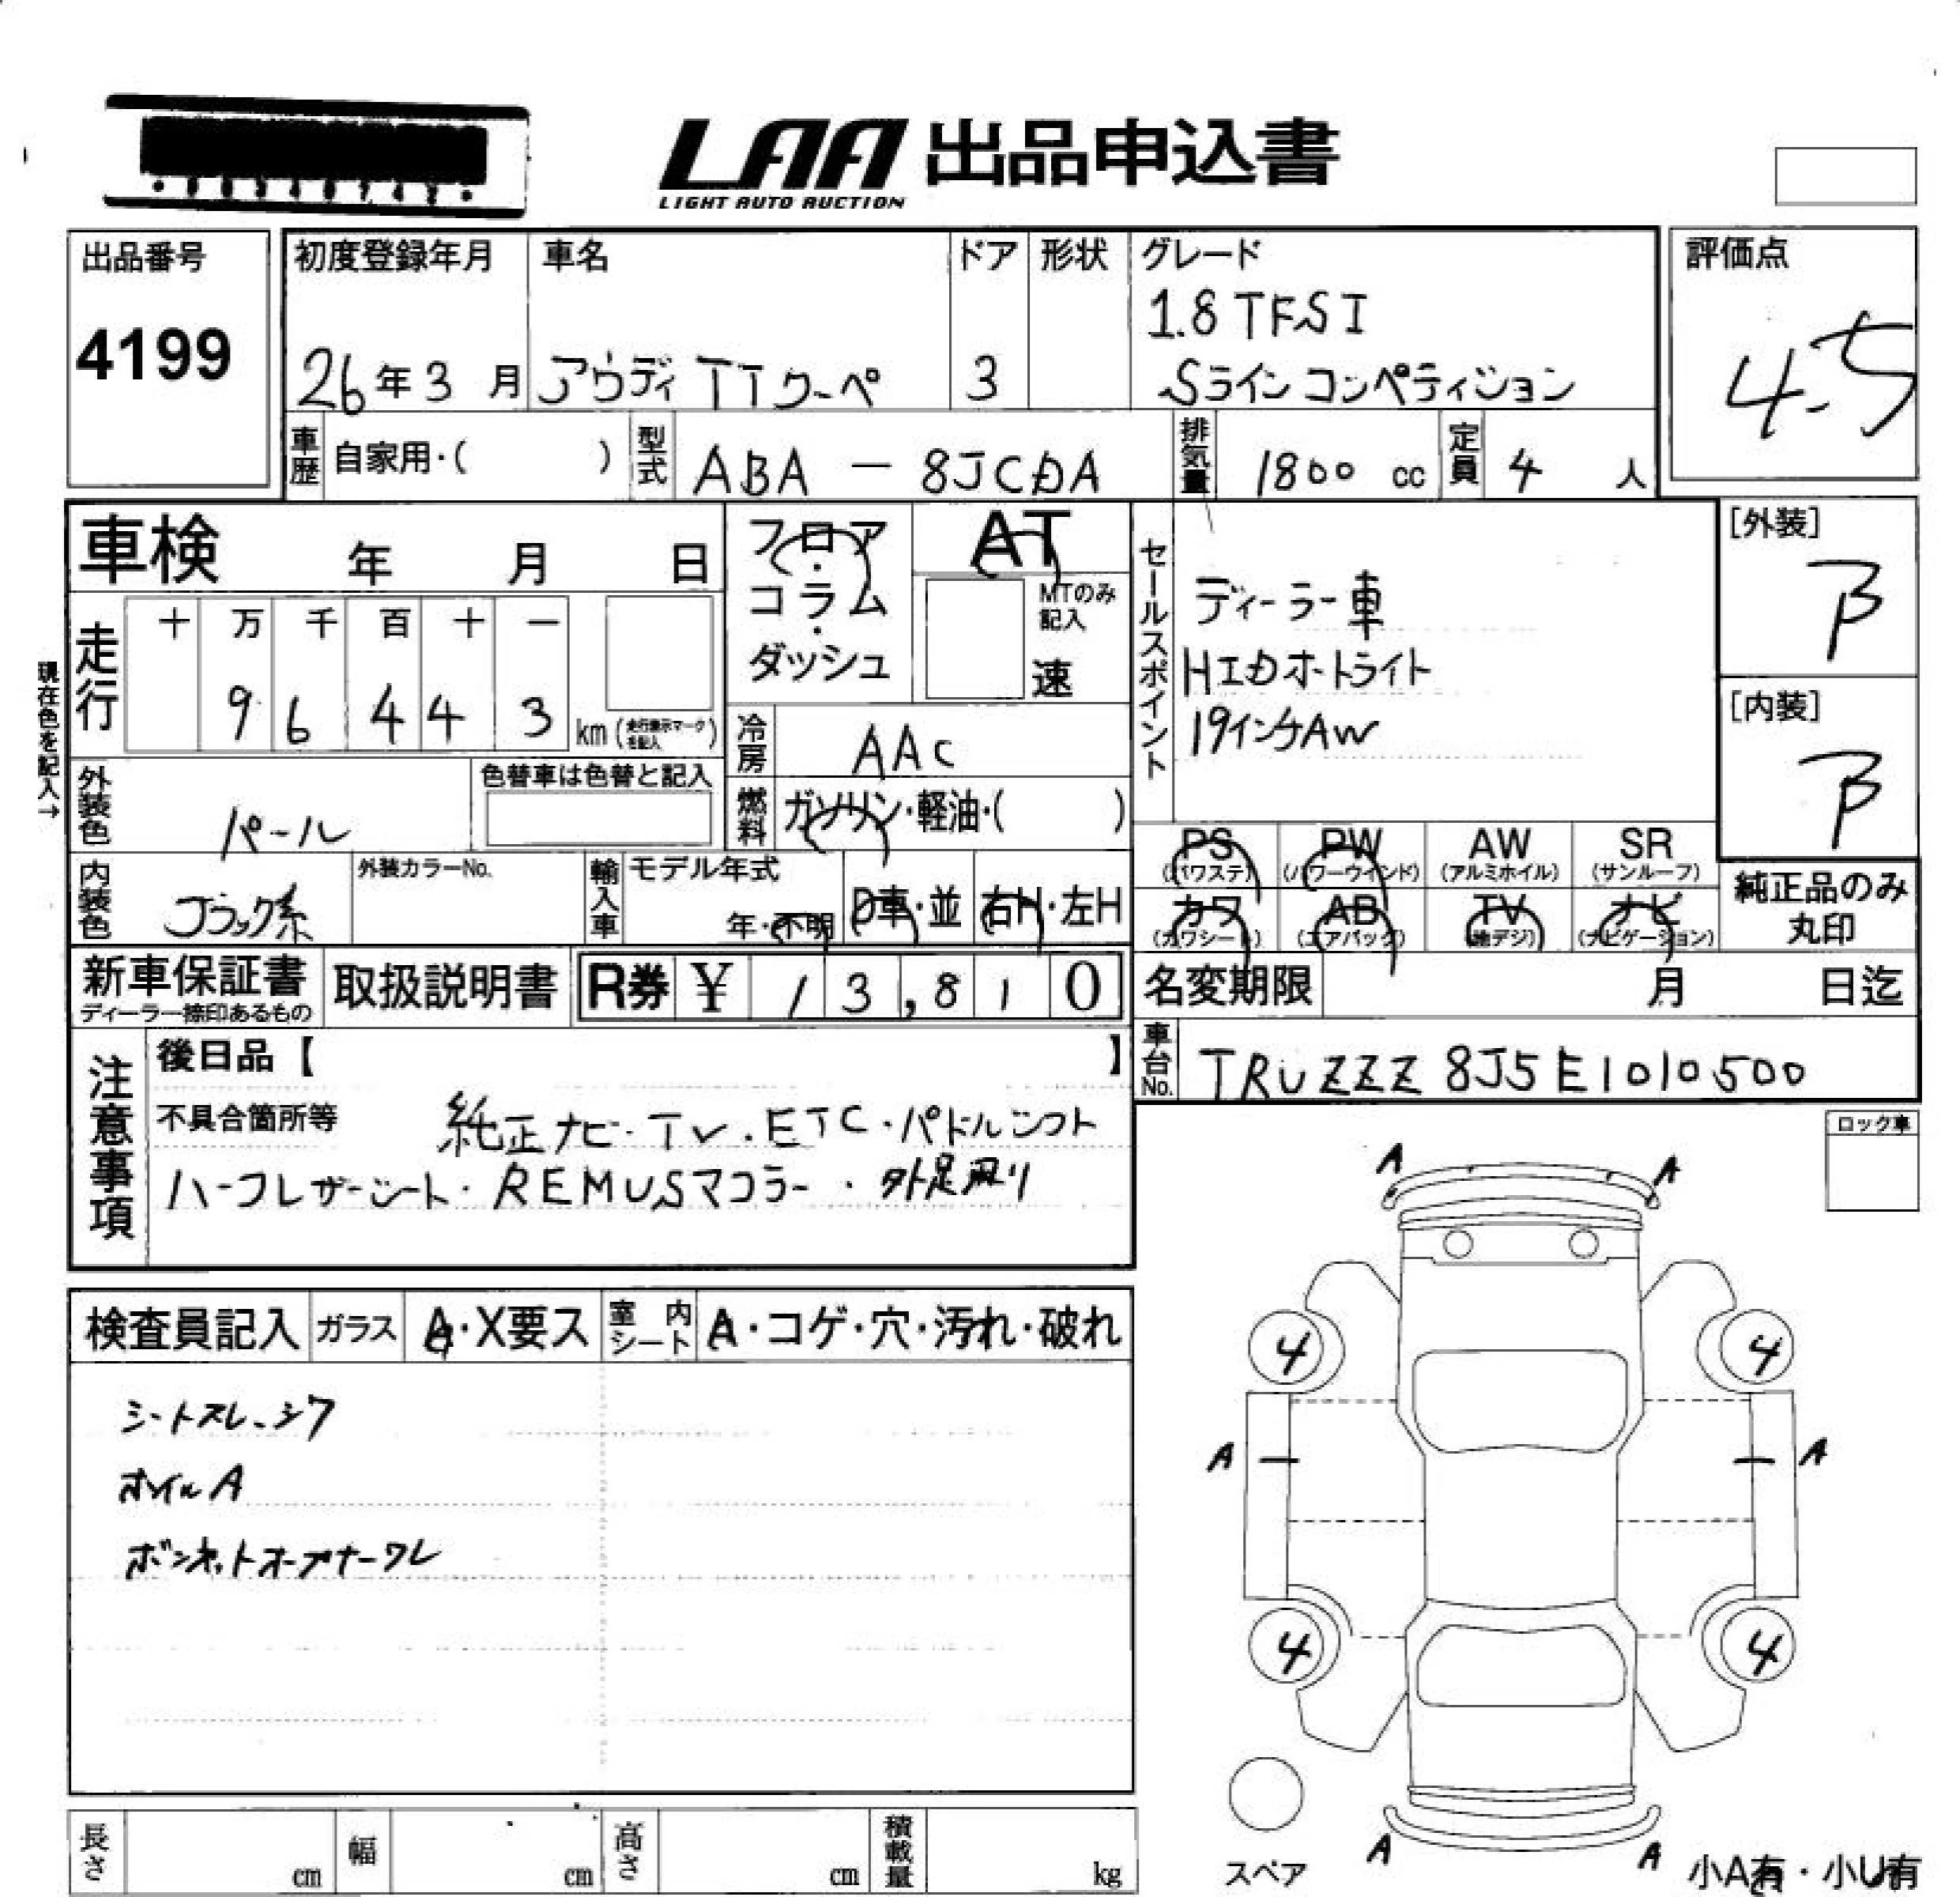 LAA 出品申込書
LIGHT AUTO AUCTION
出品番号
4199
初度登録年月
26年3月
車名
アウディ TTクーペ
ドア
3
形状
グレード
1.8 TFSI
Sライン コンペティション
評価点
4.5
車歴 自家用・( )
型式 ABA - 8JCDA
排気量 1800 cc
定員 4 人
車検 年 月 日
現在色を記入→
走行
十 万 千 百 十 一
9 6 4 4 3 km(走行表示マークを記入)
フロア
・
コラム
・
ダッシュ
AT
MTのみ
記入
速
冷房 AAC
燃料 ガソリン・軽油・( )
外装色 パール
色替車は色替と記入
内装色 ブラック系
外装カラーNo.
輸入車
モデル年式
年・不明
D車・並
右H・左H
セールスポイント
ディーラー車
HIDホートライト
19インチAW
[外装]
B
[内装]
B
PS
(パワステ)
PW
(パワーウインド)
AW
(アルミホイル)
SR
(サンルーフ)
カワ
(カワシート)
AB
(エアバック)
TV
(地デジ)
ナビ
(ナビゲーション)
純正品のみ
丸印
新車保証書
ディーラー捺印あるもの
取扱説明書
R券 ¥ 13,810
名変期限 月 日迄
車台No. TRUZZZ8J5E1010500
注意事項
後日品【 】
不具合箇所等 純正ナビ・TV・ETC・パドルシフト
ハーフレザーシート・REMUSマフラー・外足廻り
ロック車
検査員記入
ガラス A・X要ス
室内シート A・コゲ・穴・汚れ・破れ
シートスレ、シワ
ホイルA
ボンネットオープナーワレ
A A
4 4
A A
4 4
A A
スペア
小A有・小U有
長さ cm
幅 cm
高さ cm
積載量 kg